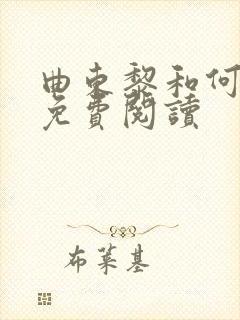 曲東黎和何
免費閱讀
布萊基